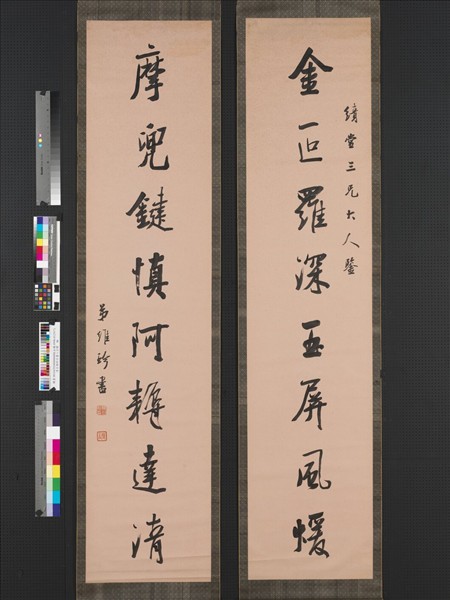 績堂三兄大人鑒
金叵羅深玉屏風煖
摩兜鍵慎阿耨達清
弟維珍書